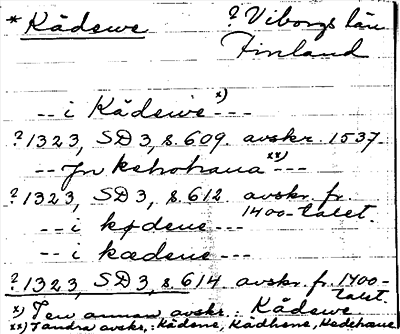 * Kådewe
? Viborgs län
Finland
-- i Kådewe x) ---
? 1323, SD 3, s. 609. avskr. 1537.
-- Jn kehohana xx) --
? 1323, SD 3, s. 612 avskr. fr. 1400-talet.
-- i kødene ---
-- i kædene ---
? 1323, SD 3, s. 614 avskr. fr. 1400-talet.
x) I en annan avskr.: Kådewe
xx) I andra avskr.: Kådene, Kådhene, Kedehane